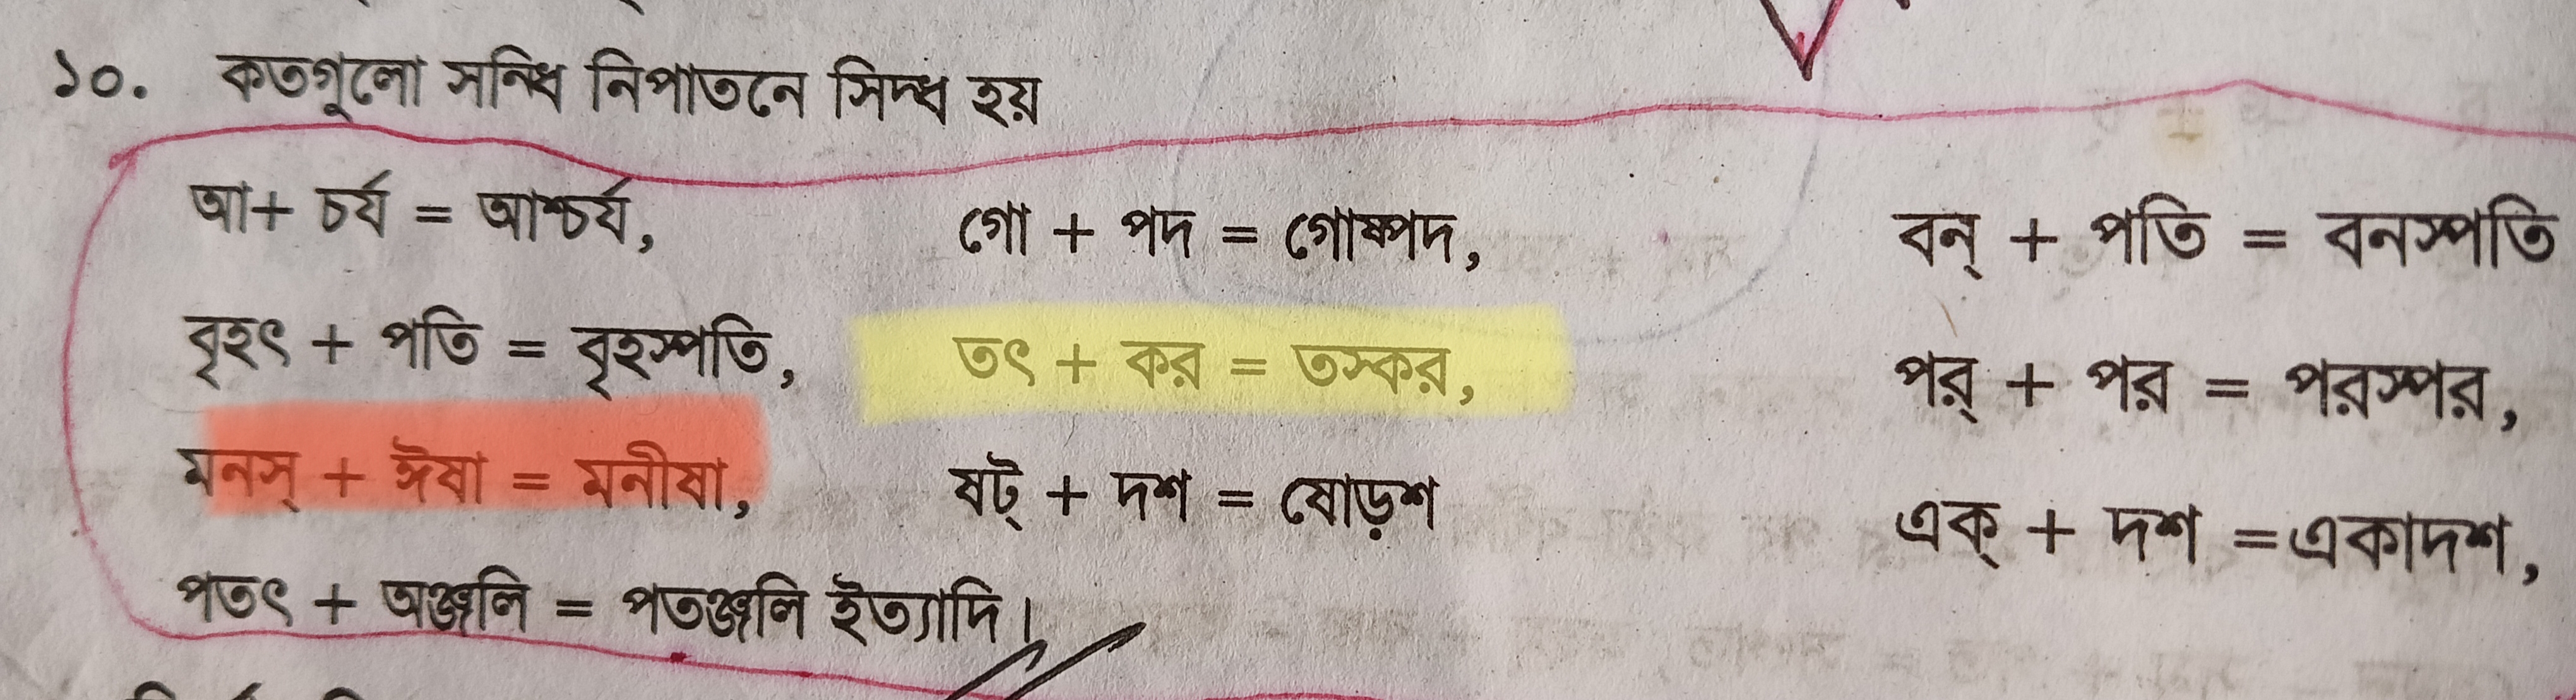 ১০. কতগুলো সন্ধি নিপাতনে সিদ্ধ হয়
আ+ চর্য = আশ্চর্য, গো + পদ = গোষ্পদ, বন্ + পতি = বনস্পতি
বৃহৎ + পতি = বৃহস্পতি, তৎ + কর = তস্কর, পর্ + পর = পরস্পর,
মনস্ + ঈষা = মনীষা, ষট্ + দশ = ষোড়শ এক্ + দশ =একাদশ,
পতৎ + অঞ্জলি = পতঞ্জলি ইত্যাদি।